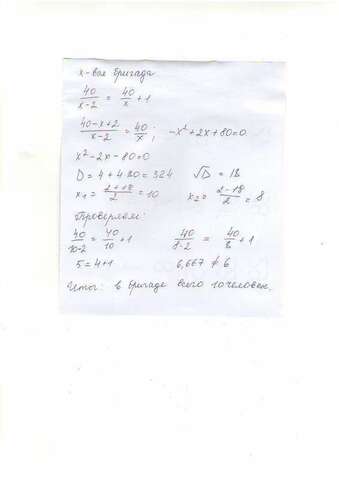 x - вся бригада
40/x-2 = 40/x + 1
40-x+2/x-2 = 40/x ; -x²+2x+80=0
x²-2x-80=0
D = 4 + 4·80 = 324 √D = 18
x₁ = 2+18/2 = 10 x₂ = 2-18/2 = 8
Проверяем:
40/10-2 = 40/10 + 1 40/8-2 = 40/8 + 1
5 = 4+1 6,667 ≠ 6
Итог: в бригаде всего 10 человек.